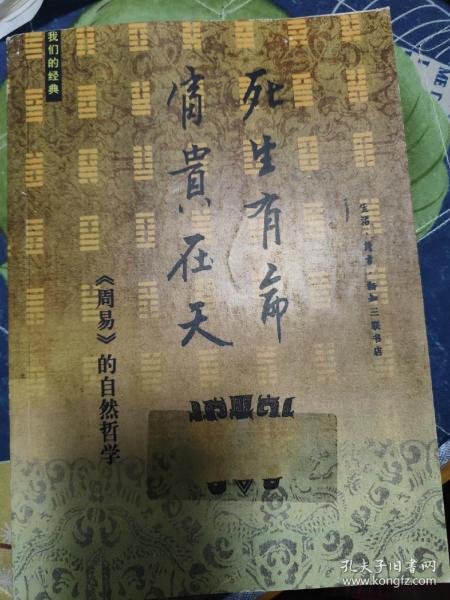 我们的经典
死生有命
富貴在天
《周易》的自然哲学
生活·讀書·新知三联书店
孔夫子旧书网
www.kongfz.com